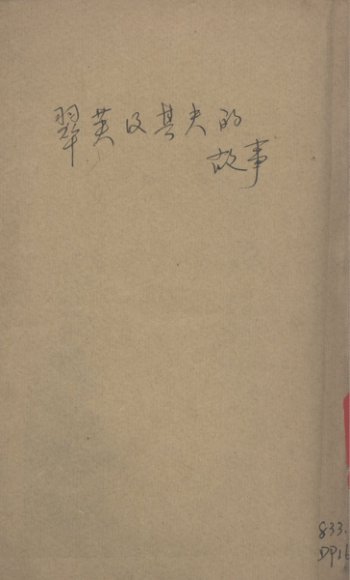 翠英及其夫的
故事
833.
DP16